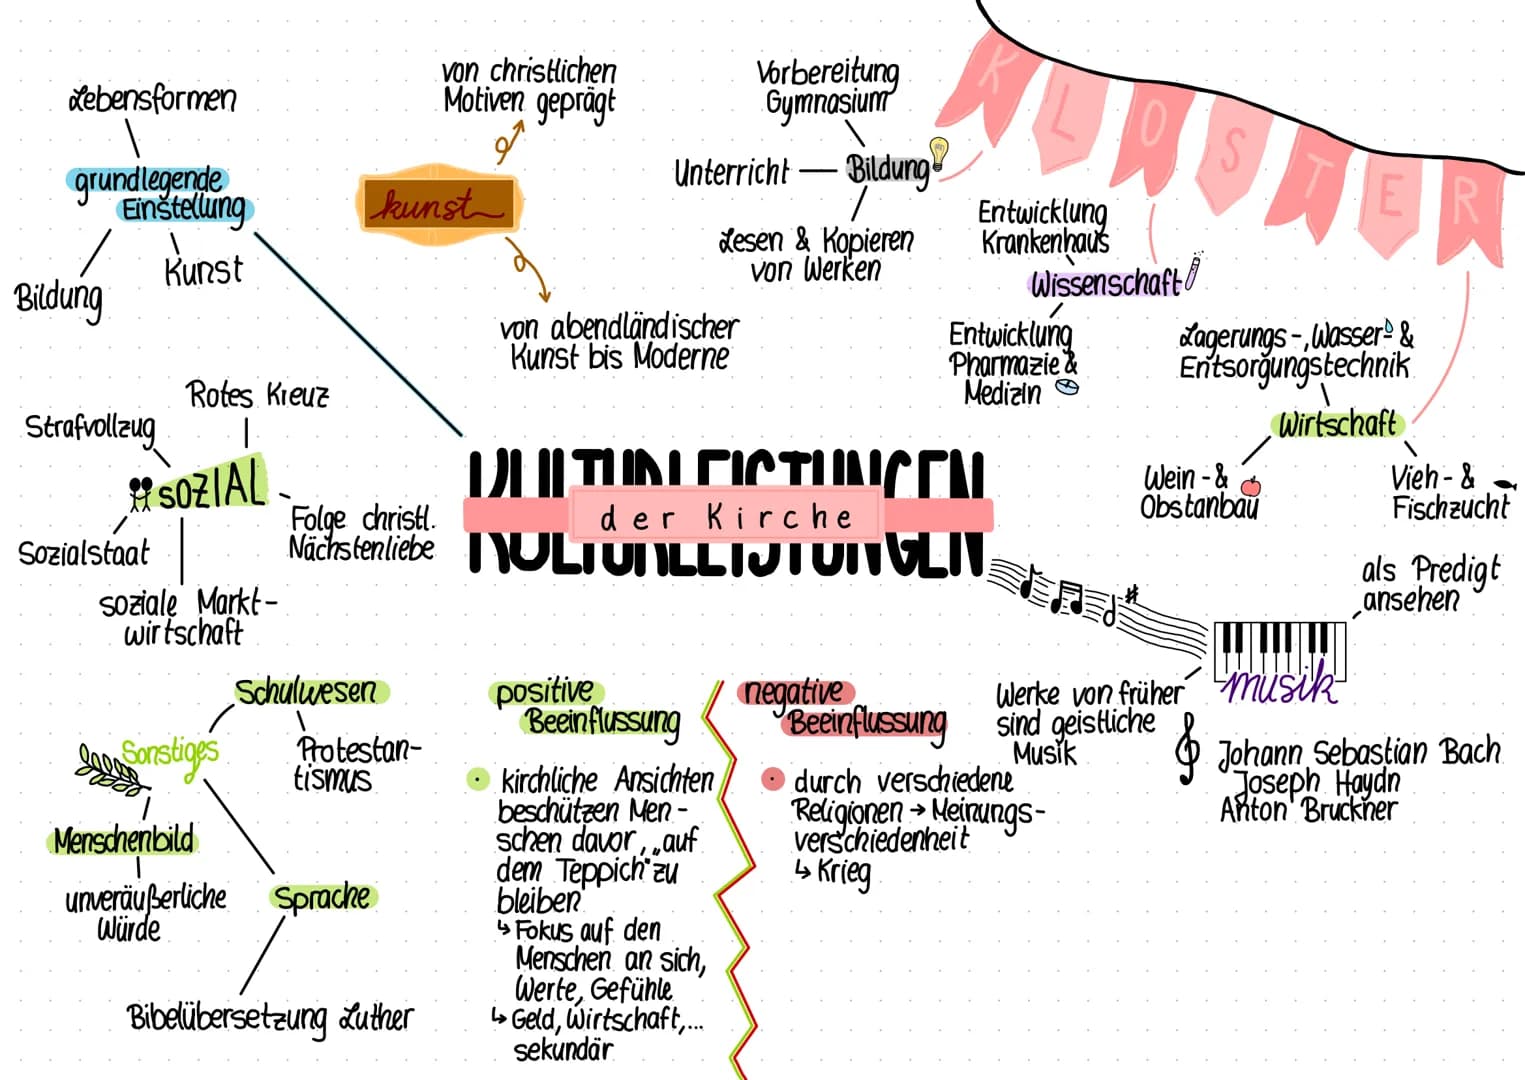 Lebensformen
grundlegende
Einstellung
Bildung
Kunst
von christlichen
Motiven geprägt
kunst
von abendländischer
Kunst bis Moderne
Vorbereitung
Gymnasium
Unterricht
Bildung
Lesen & Kopieren
von Werken
KLOSTER
Entwicklung
Krankenhaus
Wissenschaft
Entwicklung
Pharmazie &
Medizin
Lagerungs-, Wasser- &
Entsorgungstechnik
Wirtschaft
Wein- &
Obstanbau
Vieh- &
Fischzucht
Rotes Kreuz
Strafvollzug
SOZIAL
Folge christl.
Nächstenliebe
Sozialstaat
soziale Markt-
wirtschaft
KULTURLEISTUNGEN
der Kirche
als Predigt
ansehen
musik
Werke von früher
sind geistliche
Musik
Johann Sebastian Bach
Joseph Haydn
Anton Bruckner
Schulwesen
Protestan-
tismus
Sonstiges
Menschenbild
unveräußerliche
Würde
Sprache
Bibelübersetzung Luther
positive
Beeinflussung
kirchliche Ansichten
beschützen Men-
schen davor, „auf
dem Teppich" zu
bleiben
↳ Fokus auf den
Menschen an sich,
Werte, Gefühle
↳ Geld, Wirtschaft,...
sekundär
negative
Beeinflussung
durch verschiedene
Religionen → Meinungs-
verschiedenheit
↳ Krieg